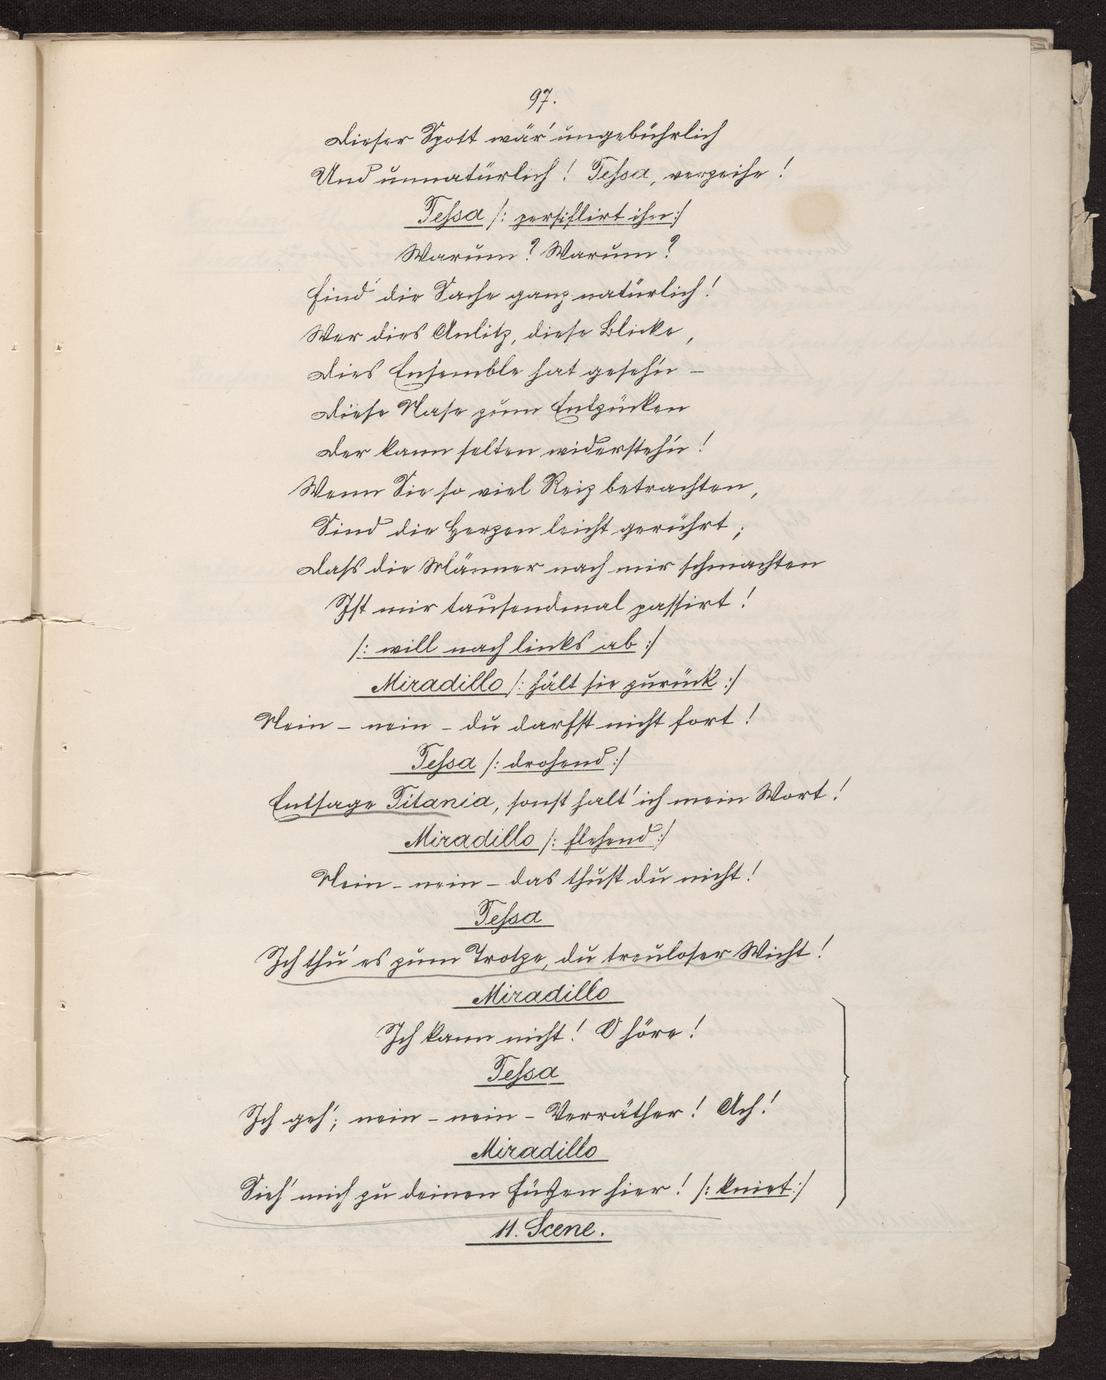 97.
Dieser Spott wär' ungebührlich
Und unnatürlich! Teſsa, verzeihe!
Teſsa /: persiflirt ihn :/
Warum? Warum?
Find' die Sache ganz natürlich!
Wer dies Anlitz, diese Blicke,
Dies Ensemble hat geseh'n –
Diese Nase zum Entzücken
Der kann selten widersteh'n!
Wenn Sie so viel Reiz betrachten,
Sind die Herzen leicht gerührt;
Daſs die Männer nach mir schmachten
Ist mir tausendmal passirt!
/: will nach links ab :/
Miradillo /: hält sie zurück :/
Nein – nein – du darfst nicht fort!
Teſsa /: drohend :/
Entsage Titania, sonst halt' ich mein Wort!
Miradillo /: flehend :/
Nein – nein – das thust du nicht!
Teſsa
Ich thu' es zum Trotze, du treuloser Wicht!
Miradillo
Ich kann nicht! O höre!
Teſsa
Ich geh'; nein – nein – Verräther! Ach!
Miradillo
Sieh' mich zu deinen Füßen hier! /: kniet :/
11. Scene.